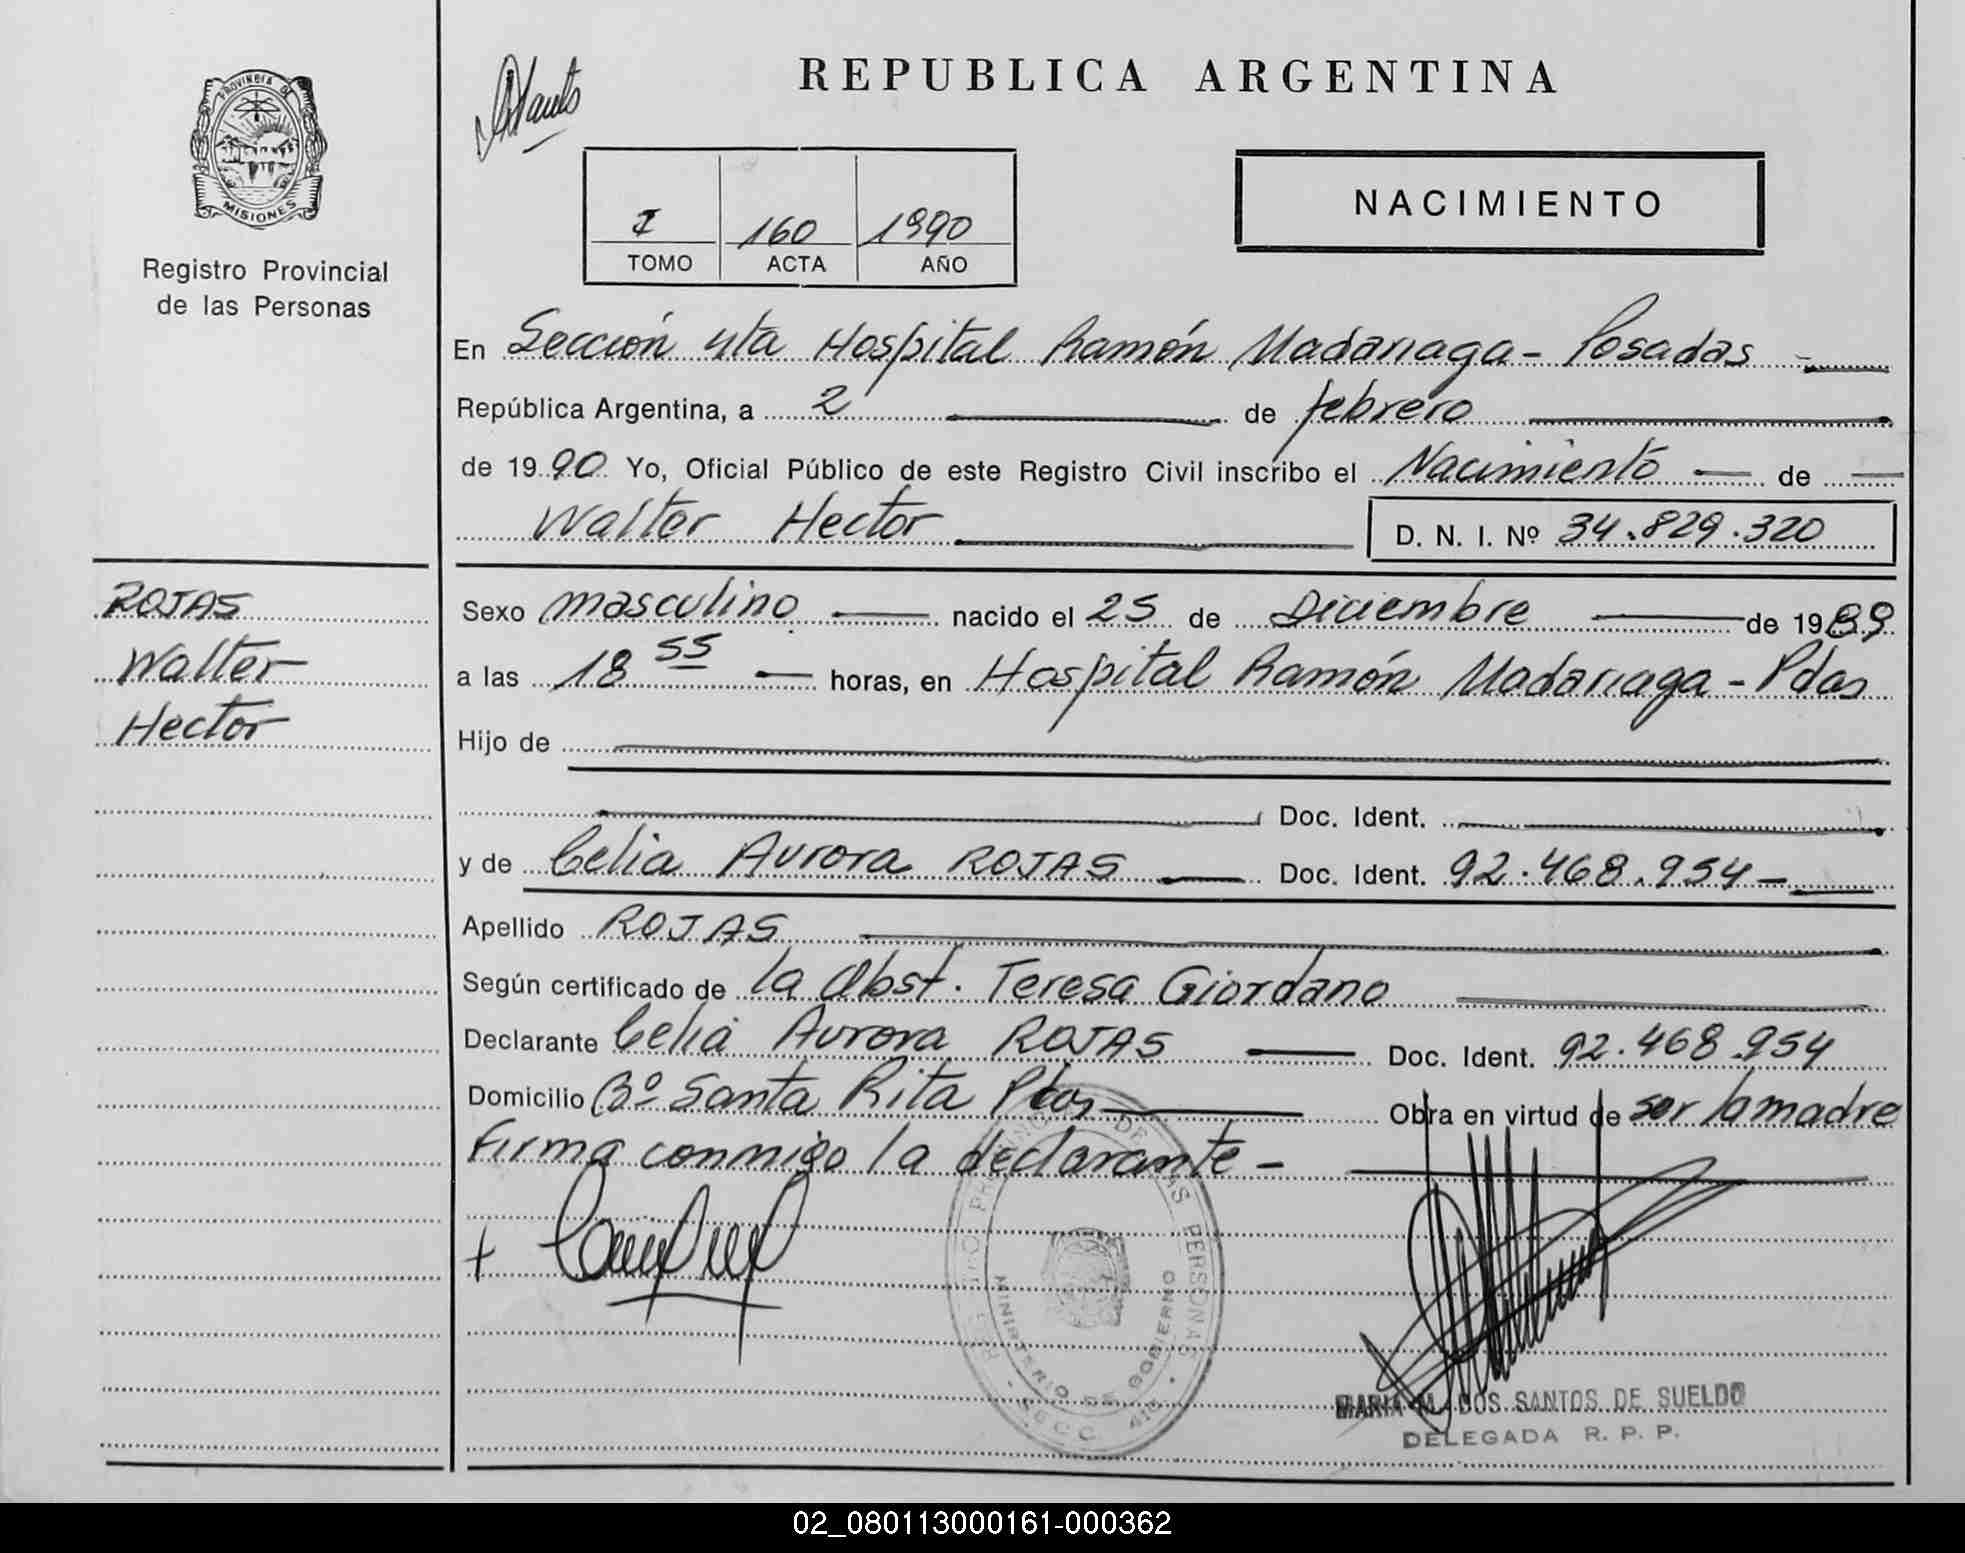 PROVINCIA DE
MISIONES
Registro Provincial
de las Personas
ROJAS
Walter
Hector
REPUBLICA ARGENTINA
I 160 1990
TOMO ACTA AÑO
NACIMIENTO
En Sección 4ta Hospital Ramón Madariaga - Posadas -
República Argentina, a 2 de febrero
de 1990 Yo, Oficial Público de este Registro Civil inscribo el Nacimiento de
Walter Hector D. N. I. Nº 34.829.320
Sexo masculino nacido el 25 de Diciembre de 1989
a las 18 55 horas, en Hospital Ramón Madariaga - Pdas
Hijo de
Doc. Ident.
y de Celia Aurora ROJAS Doc. Ident. 92.468.954-
Apellido ROJAS
Según certificado de la Obst. Teresa Giordano
Declarante Celia Aurora ROJAS Doc. Ident. 92.468.954
Domicilio Bº Santa Rita Pdas Obra en virtud de ser la madre
Firma conmigo la declarante -
REGISTRO PROVINCIAL DE LAS PERSONAS
MINISTERIO DE GOBIERNO
SECC. 4ta
MARIA M. DOS SANTOS DE SUELDO
DELEGADA R. P. P.
02_080113000161-000362